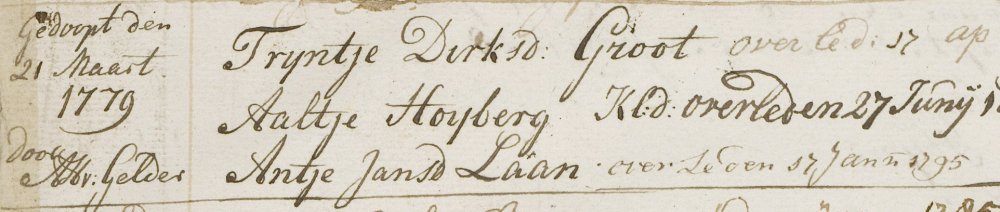 Gedoopt den
21 Maart
1779
door
AHv: Gelder
Tryntje Dirksd: Groot overled: 17 ap
Aaltje Hoyberg Kl:d: overleden 27 Junij 1
Antje Jansd Laan. overleden 17 Jann 1795
1785